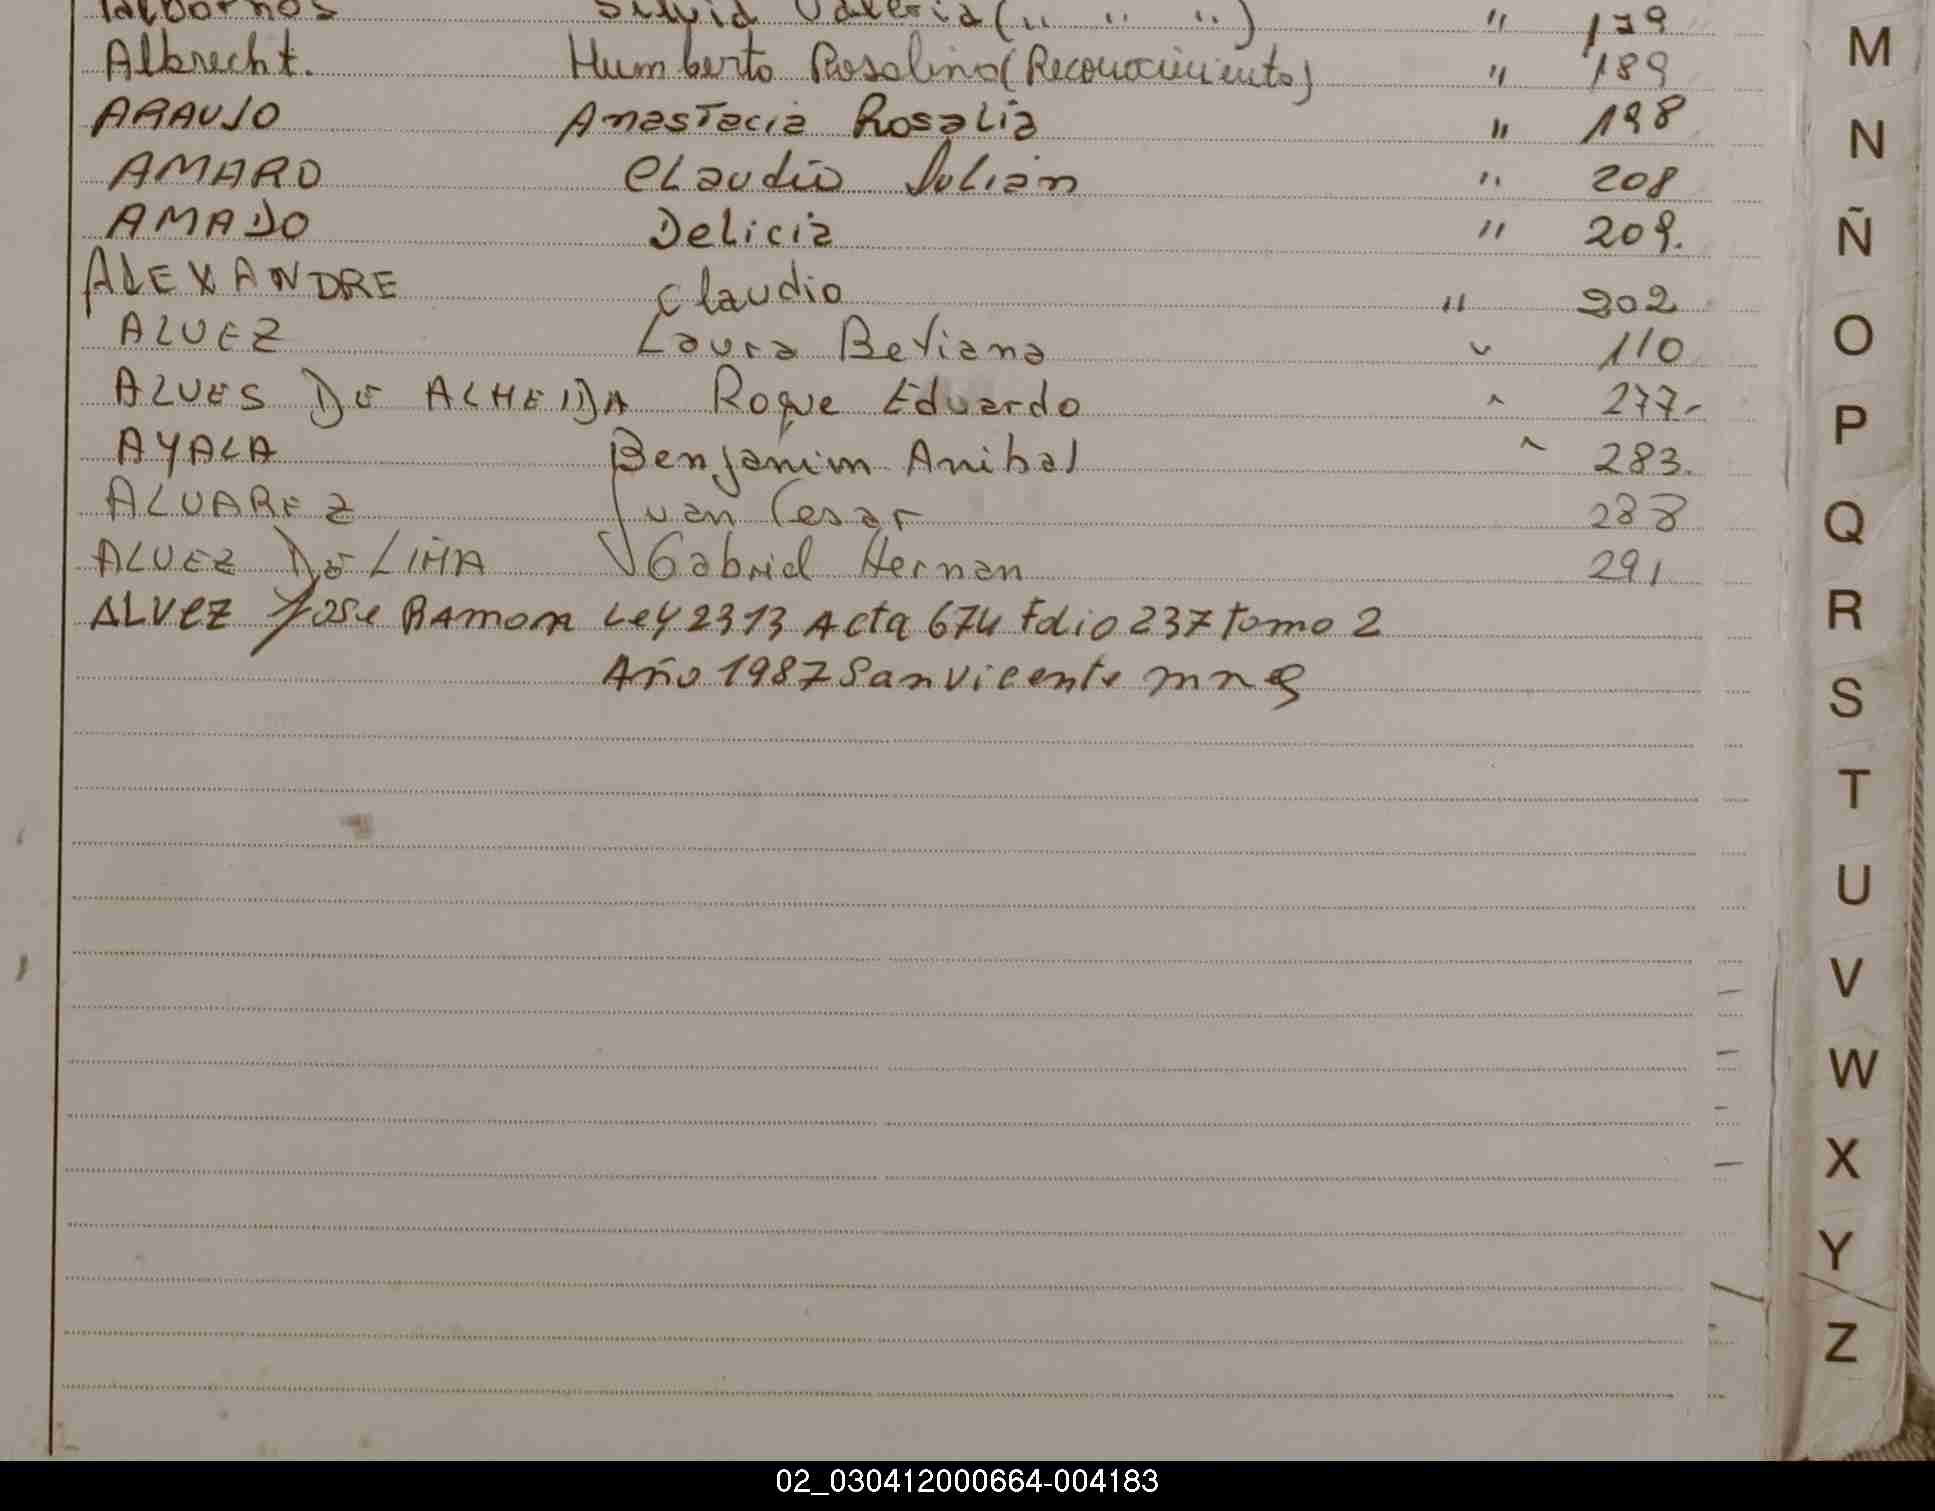 Albornos Silvia Valeria (" " ") " 179
Albrecht. Humberto Rosalino (Reconocimiento) " 189
ARAUJO Anastacia Rosalia " 198
AMARO Claudio Julian " 208
AMADO Delicia " 209.
ALEXANDRE Claudio " 202
ALVEZ Laura Betiana " 110
ALVES DE ALMEIDA Roque Eduardo " 277-
AYALA Benjamim Anibal " 283.
ALVAREZ Juan Cesar 288
ALVEZ DE LIMA Gabriel Hernan 291
ALVEZ Jose RAMON Ley 2313 Acta 674 Folio 237 tomo 2
Año 1987 San Vicente mns
M
N
Ñ
O
P
Q
R
S
T
U
V
W
X
Y
Z
02_030412000664-004183